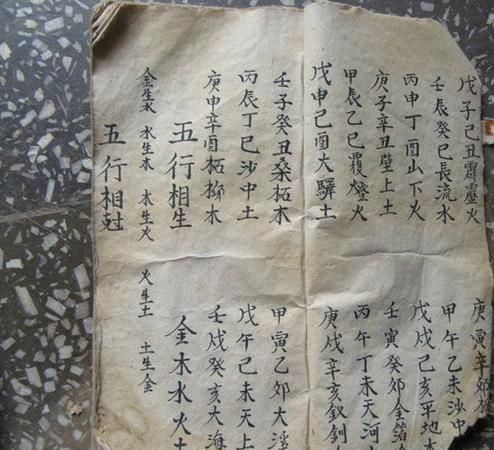 戊子己丑霹靂火 庚寅辛卯
壬辰癸巳長流水 甲午乙未沙中
丙申丁酉山下火 戊戌己亥平地木
庚子辛丑壁上土 壬寅癸卯金箔
甲辰乙巳覆燈火 丙午丁未天河
戊申己酉大驛土 庚戌辛亥釵釧
壬子癸丑桑柘木 甲寅乙卯大溪
丙辰丁巳沙中土 戊午己未天上
庚申辛酉柘柳木 壬戌癸亥大海
五行相生 金木水火土
金生水 水生木 木生火 火生土 土生金
五行相尅